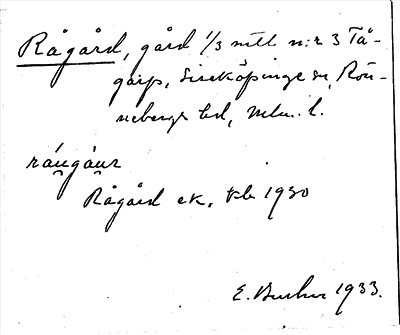 Rågård, gård 1/3 mtl n:r 3 Tå-
garp, Sireköpinge sn, Rön-
nebergs hd, Mlm. l.
ráu̯gáu̯r
Rågård ek. kb 1930
E. 1933.